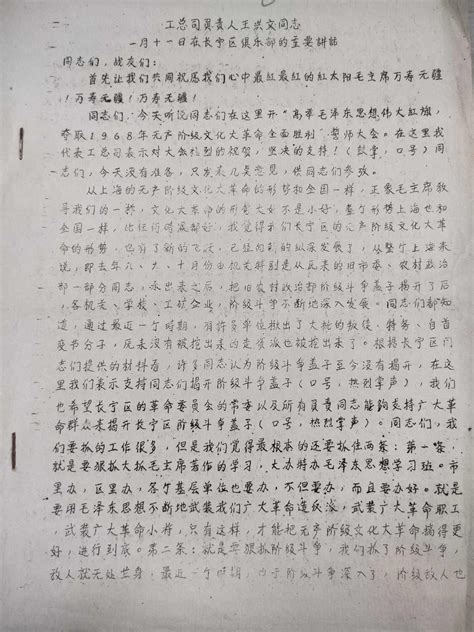 工总司负责人王洪文同志
一月十一日在长宁区俱乐部的主要讲话
同志们,战友们:
首先让我们共同祝愿我们心中最红最红的红太阳毛主席万寿无疆
!万寿无疆!万寿无疆!
同志们,今天听说同志们在这里开"高举毛泽东思想伟大红旗,
夺取1968年无产阶级文化大革命全面胜利"誓师大会。在这里我
代表工总司表示对大会热烈的祝贺,坚决的支持!(鼓掌,口号)同
志们,今天没有准备,只发表几点意见,供同志们参攷。
从上海的无产阶级文化大革命的形势和全国一样,正象毛主席教
导我们的一样,文化大革命的形势大好不是小好,整个形势上海也和
全国一样,比任何时候都好,我觉得我们长宁区的无产阶级文化大革
命的形势,也有了新的飞跃,已经向新的纵深发展了,从整个上海来
说,即去年八、九、十月份由机关特别是从瓦来的旧市委、农村政治
部一部分同志,杀出来之后,把旧农村政治部阶级斗争盖子揭开了后
,各机关、学校、工矿企业,阶级斗争不断地深入发展。同志们都知
道,通过最近一个时期,有许多单位揪出了大批的叛徒、特务、自首
变节分子,瓦来没有被挖出来的走资派也被挖出来了。根据长宁区同
志们提供的材料看,许多同志认为阶级斗争盖子至今没有揭开,在这
里我们表示支持同志们揭开阶级斗争盖子(口号,热烈掌声),我们
也希望长宁区的革命委员会的常委以及所有负责同志能够支持广大革
命群众来揭开长宁区阶级斗争盖子(口号,热烈掌声)。同志们,我
们要抓的工作很多,但是我们觉得最根本的还要抓住两条:第一条,
就是要狠抓大抓毛主席著作的学习,大办特办毛泽东思想学习班。市
里办,区里办,各个基层单位也要办,不但要办,而且要办好。就是
要用毛泽东思想不断地武装我们广大革命造反派,武装广大革命职工
,武装广大革命小将,只有这样,才能把无产阶级文化大革命搞得更
好,进行到底。第二条:就是要狠抓阶级斗争,我们抓了阶级斗争,
敌人就无处藏身,最近一个时期,由于阶级斗争深入了,阶级敌人也